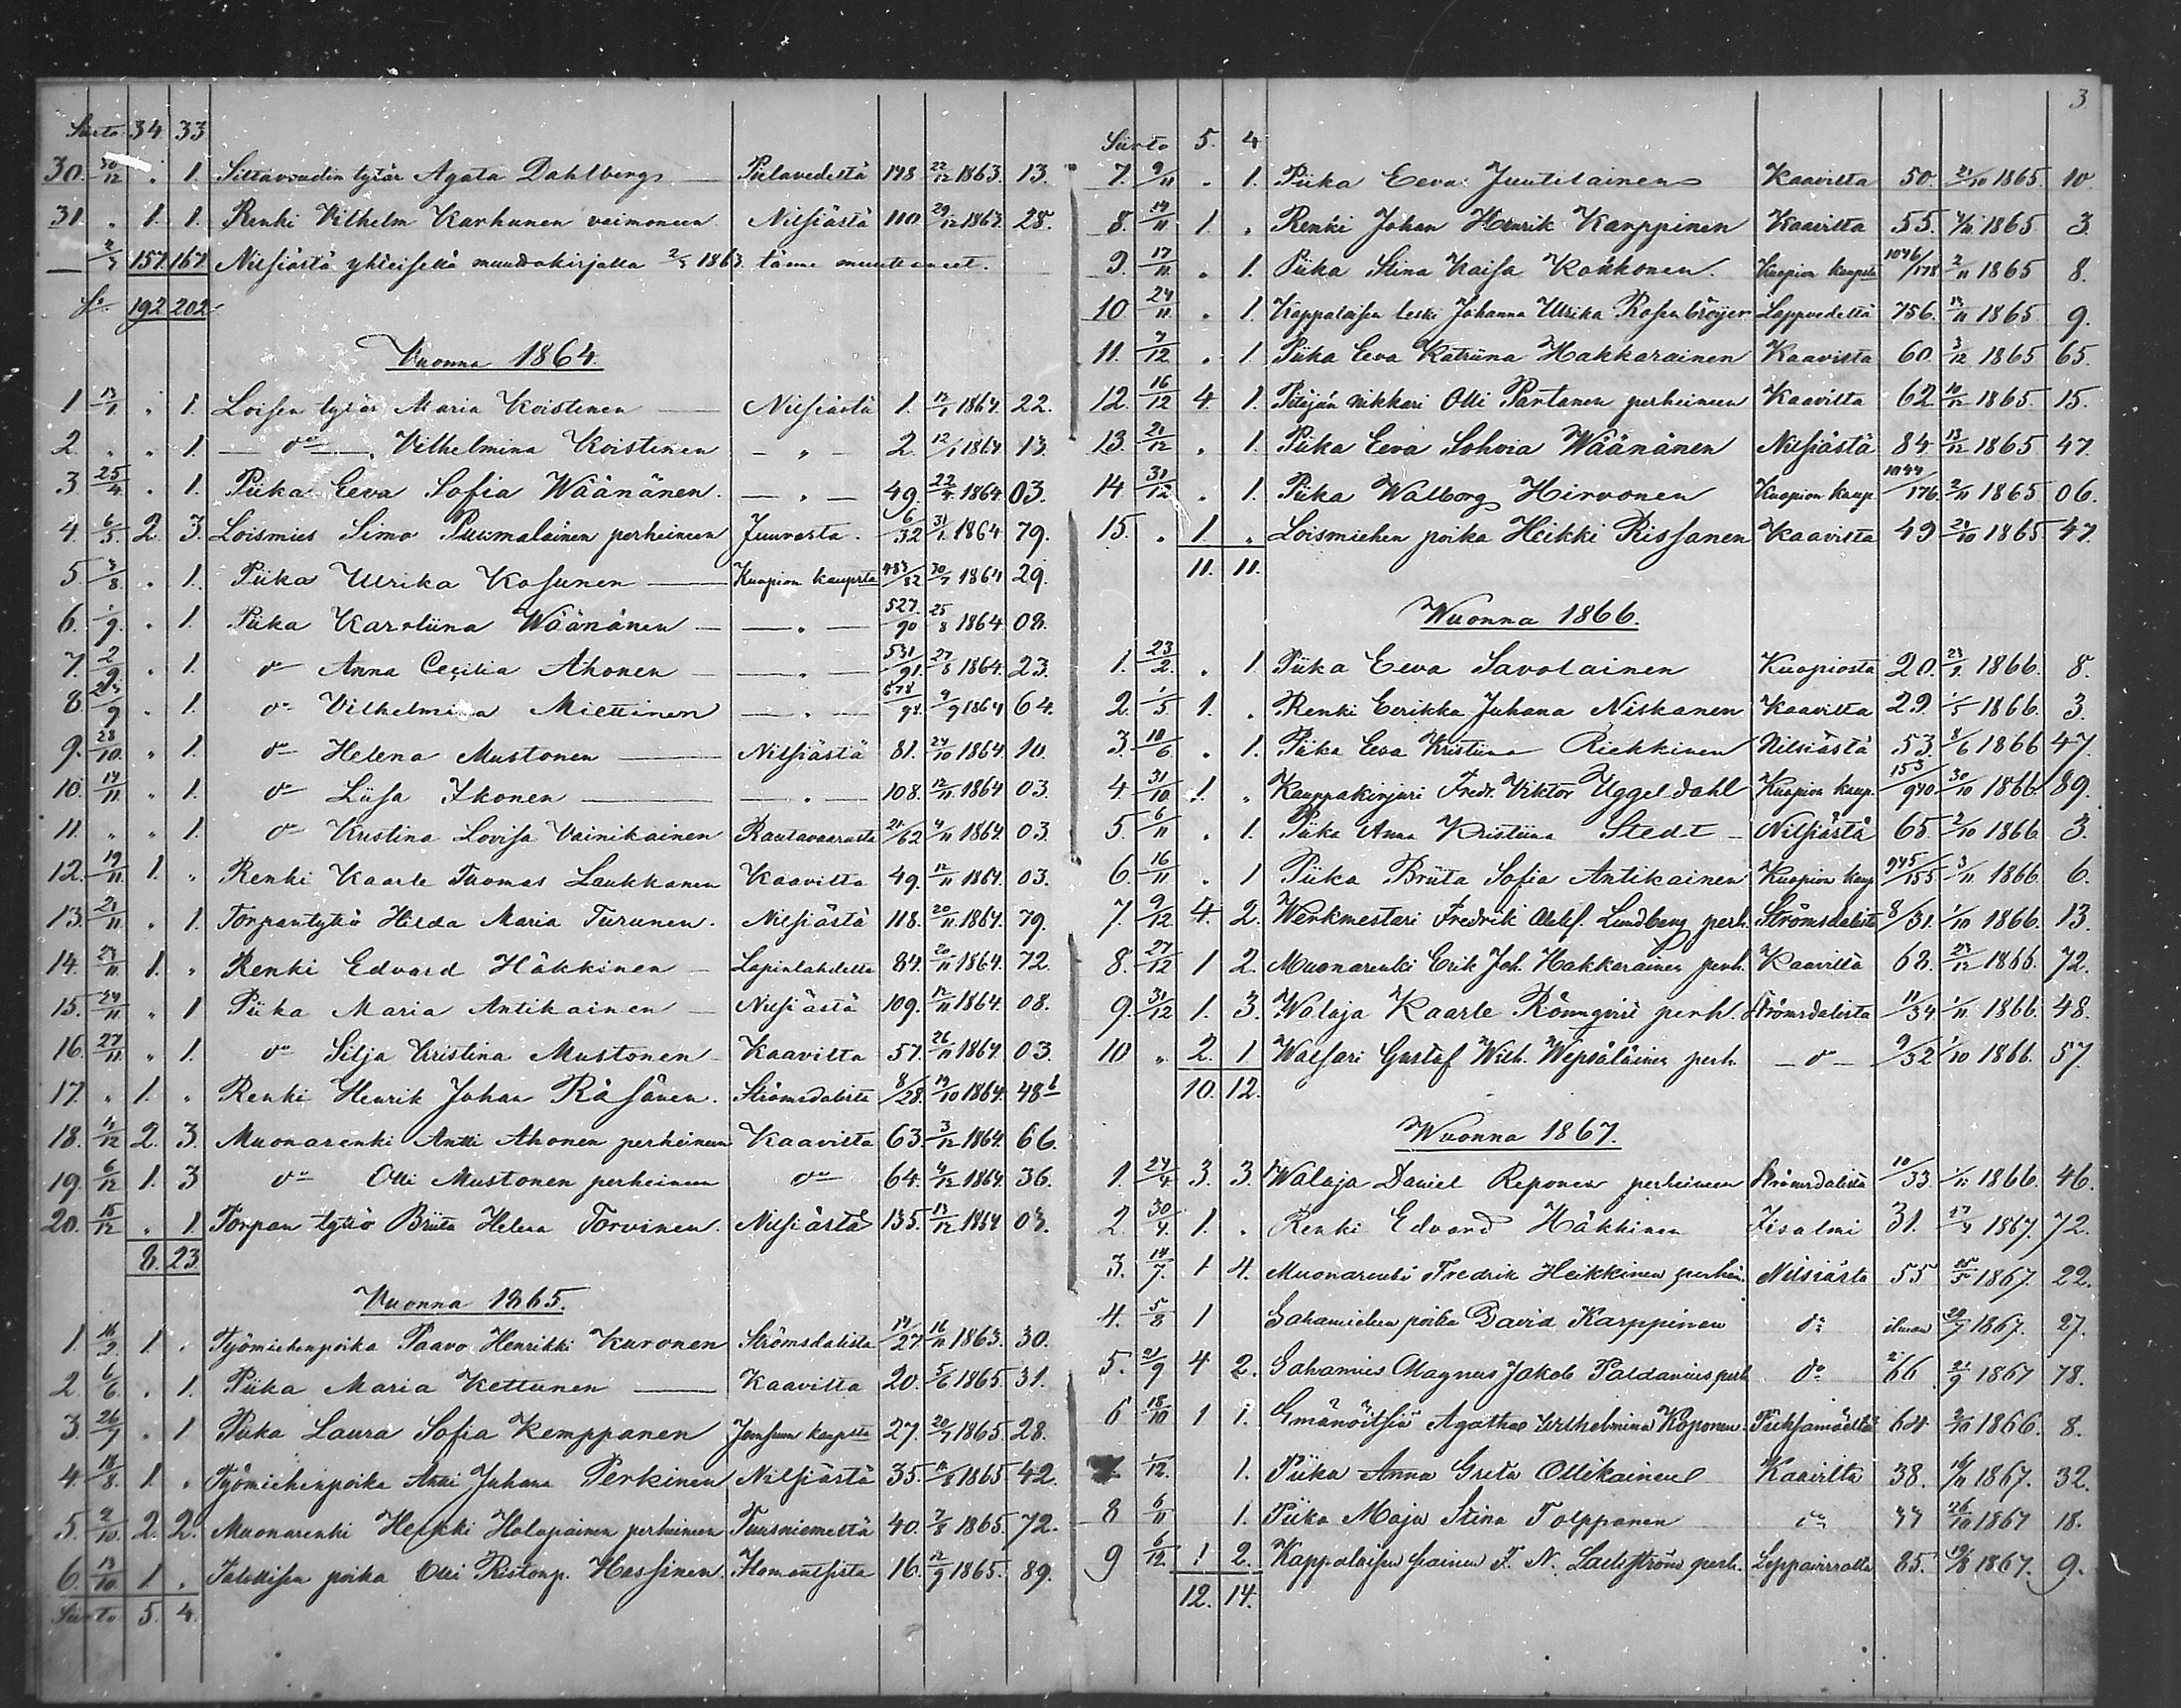 Siirto 34 33
30. 30/12 " 1. Siltavoudin tytär Agata Dahlberg Pielavedeltä 148 22/12 1863. 13.
31. " 1. 1. Renki Vilhelm Karhunen vaimoneen Nilsiästä 110 29/12 1863. 28.
— 157. 167. Nilsiästä yhteisellä muuttokirjalla 1863 tänne muuttaneet.
S:a 192 202
Vuonna 1864.
1 13/1 " 1. Loisen tytär Maria Koistinen Nilsiästä 1. 12/1 1864. 22.
2. " " 1 — d:o — Vilhelmina Koistinen — " — 2. 12/1 1864 13.
3 25/4 " 1. Piika Eeva Sofia Wäänänen. — " — 49. 22/4 1864 03.
4. 6/5 2. 3. Loismies Simo Puumalainen perheineen Juuvasta. 6/32 31/1 1864. 79.
5. 3/8 " 1. Piika Ulrika Kosunen Kuopion kaupsta 483/82 30/7 1864 29.
6. 1/9 " 1. Piika Karoliina Wäänänen — " — 527/90 25/8 1864 08.
7. 2/9 " 1. d:o Anna Cecilia Ahonen — " — 531/91. 27/8 1864. 23.
8 " 1. d:o Vilhelmiina Miettinen — " — 9/9 1864 64.
9. 28/10 " 1. d:o Helena Mustonen Nilsiästä 81. 24/10 1864 10.
10. 14/11 " 1. d:o Liisa Ikonen — " — 108. 12/11 1864 03.
11. " " 1. d:o Kustina Lovisa Vainikainen Rautavaarasta 21/62 4/11 1864. 03.
12. 19/11 1. " Renki Kaarle Thomas Laukkanen Kaavilta 49. 12/11 1864. 03.
13. 21/11 " 1. Torpantyttö Hilda Maria Turunen. Nilsiästä 118. 20/11 1864. 79.
14. 23/11 1. " Renki Edvard Häkkinen Lapinlahdelta 84. 20/11 1864. 72.
15. 24/11 " 1 Piika Maria Antikainen Nilsiästä 109. 12/11 1864. 08.
16. 27/11 " 1. d:o Silja Kristina Mustonen Kaavilta 57. 26/11 1864. 03.
17. " 1. " Renki Henrik Johan Räsänen. Strömsdalista 8/28. 19/10 1864. 48
18. 4/12 2. 3. Muonarenki Antti Ahonen perheineen Kaavilta 63. 3/12 1864. 66.
19. 6/12 1. 3 d:o Olli Mustonen perheineen d:o 64. 4/12 1864. 36.
20. 15/12 " 1. Torpan tyttö Briita Helena Torvinen. Nilsiästä 135. 13/12 1864 03.
8. 23.
Vuonna 1865.
1. 16/2. 1. " Työmiehenpoika Paavo Henrikki Kuronen Strömsdalista 14/27 1863. 30.
2. 6/6. " 1. Piika Maria Kettunen Kaavilta 20. 5/6 1865 31.
3 26/7 " 1 Piika Laura Sofia Kemppanen Joensuun kaupsta 27. 20/7 1865. 28.
4. 18/8. 1. " Työmiehenpoika Antti Juhana Perkinen Nilsiästä 35. 1865 42.
5. 2/10. 2. 2. Muonarenki Heikki Holopainen perheineen Tuusniemeltä 40. 1865. 72.
6. 13/10. 1. " Talollisen poika Olli Ristonp. Hassinen. Ilomantsista 16. 12/9 1865. 89.
Siirto 5. 4.
3.
Siirto 5. 4
7. 9/11 " 1. Piika Eeva Juutilainen Kaavilta 50. 29/10 1865. 10.
8. 14/11 1. " Renki Johan Henrik Karppinen Kaavilta 55. 1865 3.
9. 17/11. " 1. Piika Stina Kaisa Kokkonen. Kuopion kaupsta 1046/178 2/11 1865 8.
10. 24/11 " 1. Kappalaisen leski Johanna Ulrika Rosenbröijer Leppvedeltä 756. 13/11 1865 9.
11. 7/12 " 1. Piika Eeva Katriina Hakkarainen Kaavista 60. 3/12 1865 65.
12. 16/12 4. 1. Pitäjän nikkari Olli Pantanen perheineen Kaavilta 62. 10/12 1865. 15.
13. 21/12 " 1. Piika Eeva Sohvia Wäänänen Nilsiästä 84. 13/12 1865 47.
14 31/12 " 1. Piika Walborg Hirvonen Kuopion kaup. 1044/176. 2/11 1865 06.
15. " 1. " Loismiehen poika Heikki Rissanen Kaavista 49 29/10 1865. 47.
11. 11.
Wuonna 1866.
1. 23/2. " 1 Piika Eeva Savolainen Kuopiosta 20. 1866. 8.
2. 1/5. 1. " Renki Eerikka Juhana Niskanen Kaavilta 29. 1/5 1866. 3.
3. 10/6. " 1. Piika Eeva Kristiina Riekkinen Nilsiästä 53. 8/6 1866 47.
4. 31/10 1. " Kauppakirjuri Fredr. Viktor Uggeldahl Kuopion kaup. 153/940 30/10 1866 89.
5. 6/11 " 1. Piika Anna Kristiina Stedt Nilsiästä 65. 2/10 1866. 3.
6. 16/11 " 1 Piika Briita Sofia Antikainen Kuopion kaup 945/155 3/11 1866. 6.
7. 9/12 4. 2. Werkmestari Fredrik Lundberg perh. Strömsdalista 8/31. 1/10 1866. 13.
8. 27/12 1 2. Muonarenki Erik Joh. Hakkarainen perh. Kaavilta 68. 23/12 1866. 72.
9. 31/12 1. 3. Walaja Kaarle Rönnqvist perh. Strömsdalista 11/34 1/11 1866. 48.
10 " 2. 1 Walsari Gustaf Wilh. Wepsäläinen perh. — d:o — 9/32 1/10 1866. 57.
10. 12.
Wuonna 1867.
1. 24/4 3. 3. Walaja Daniel Reponen perheineen Strömsdalista 10/33 1866. 46.
2. 30/4. 1. " Renki Edvard Häkkinen Iisalmi 31. 17/4 1867. 72.
3. 14/7. 1 4. Muonarenki Fredrik Heikkinen perhein. Nilsiästä 55 1867. 22.
4. 5/8 1 Sahamiehen poika David Karppinen d:o ilman 1867. 27.
5. 21/9 4 2. Sahamies Magnus Jakob Paldanius perh d:o 66 21/9 1867 78.
6 18/10 1 1. Emännöitsiä Agatha Wilhelmina Koponen Pieksämäeltä 64 1866. 8.
1/12. 1. Piika Anna Greta Ollikainen Kaavilta 38. 1867. 32.
8 6/11 1. Piika Maja Stina Tolppanen d:o 44 26/10 1867 18.
9 6/12. 1 2. Kappalaisen F. N. Lackström perh. Leppävirralta 85. 1867. 9.
12. 14.